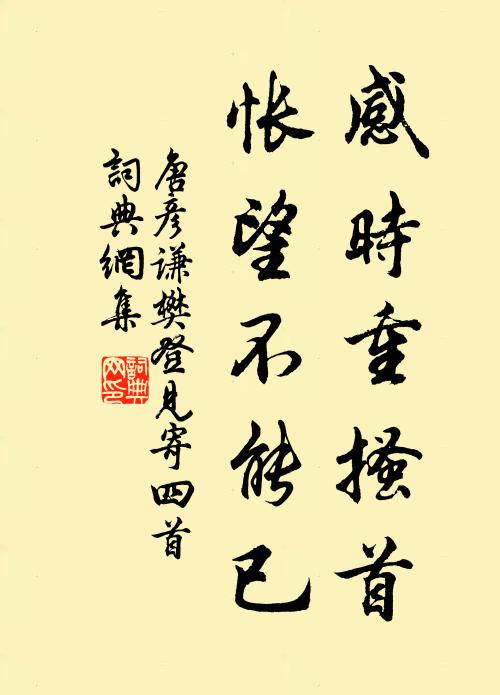 感時重搔首
悵望不能已
唐彥謙樊登見寄四首
詞典網集
詞典
网印